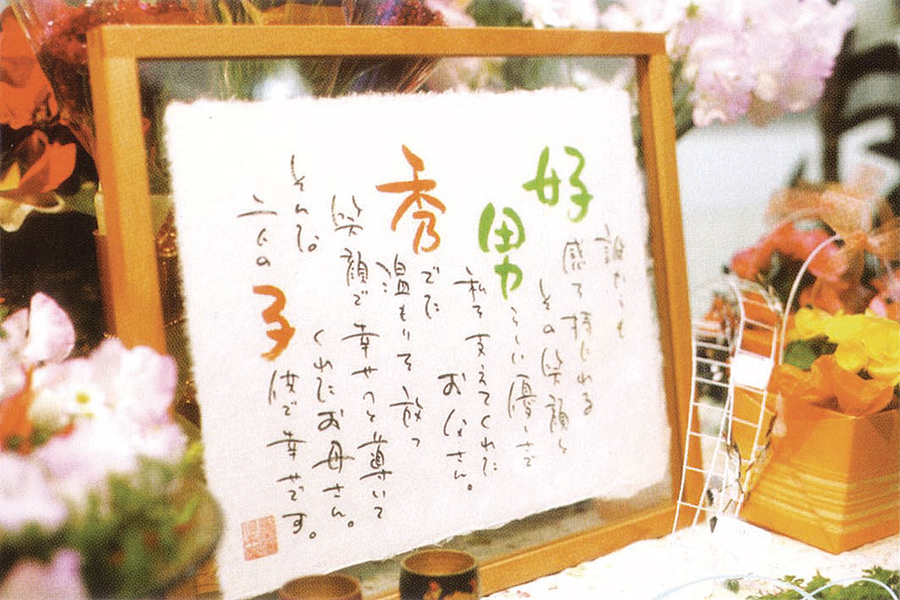 誰からも
好感を持たれる
その笑顔と
男らしい優しさで
私を支えてくれた
お父さん。
秀でた
温もりを放つ
笑顔で幸せへと導いて
くれたお母さん。
そんな
二人の
子供で幸せです。